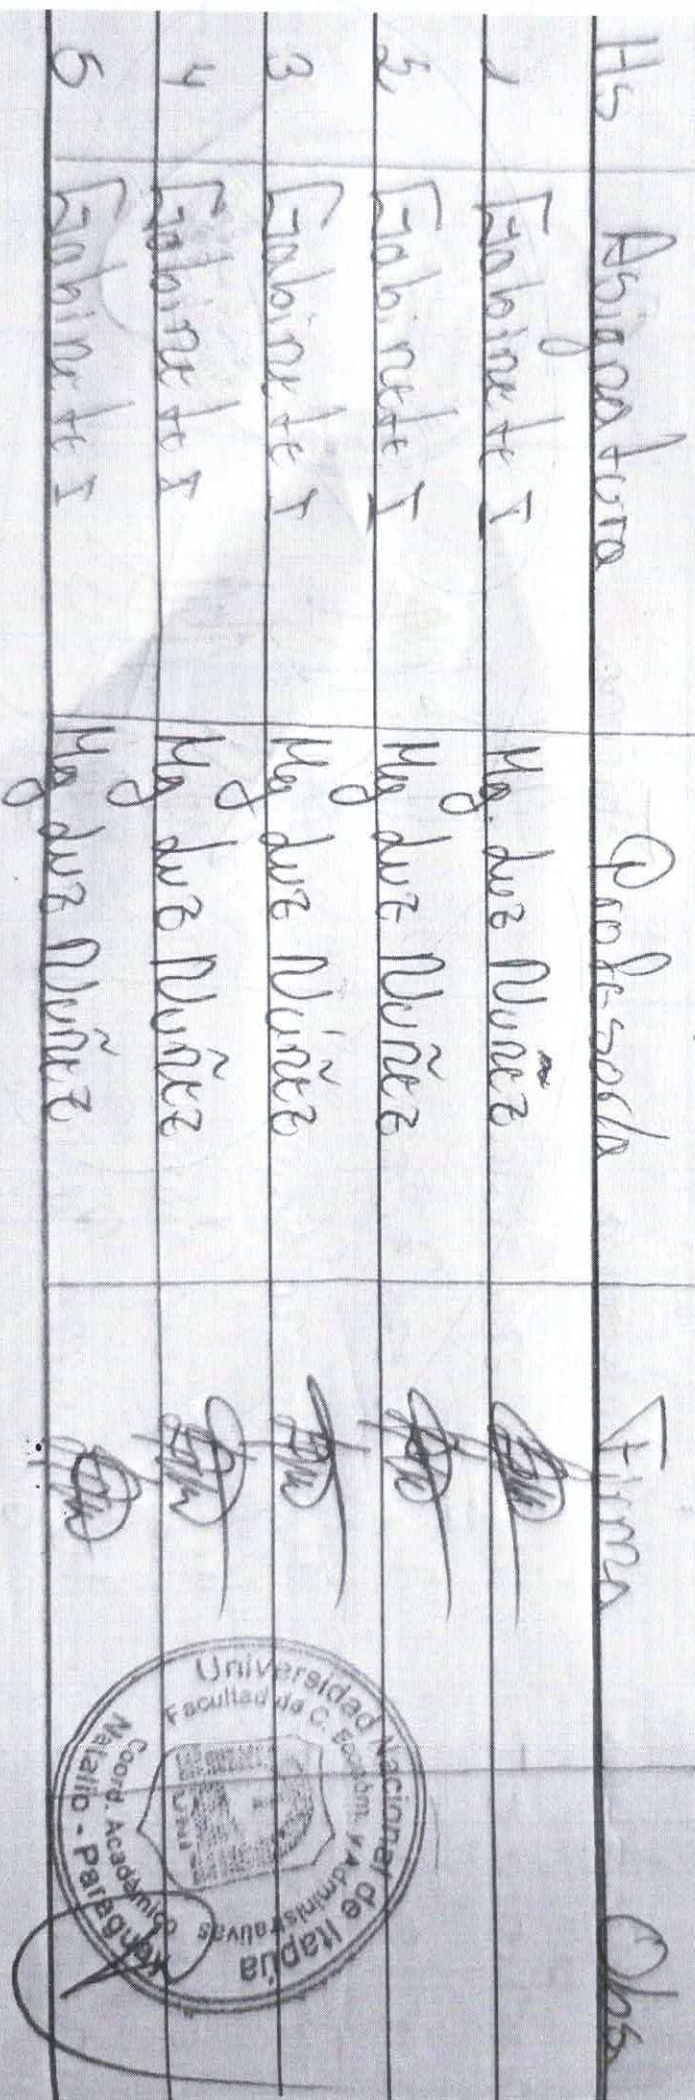 Hs Asignatura Profesor/a Firma Obs
1 Gabinete I Mg. Luz Nuñez
2 Gabinete I Mg Luz Nuñez
3 Gabinete I Mg Luz Núñez
4 Gabinete I Mg Luz Nuñez
5 Gabinete I Mg Luz Nuñez
Universidad Nacional de Itapúa
Facultad de C. Económ. y Administrativas
UNI
Coord. Académico
Natalio - Paraguay